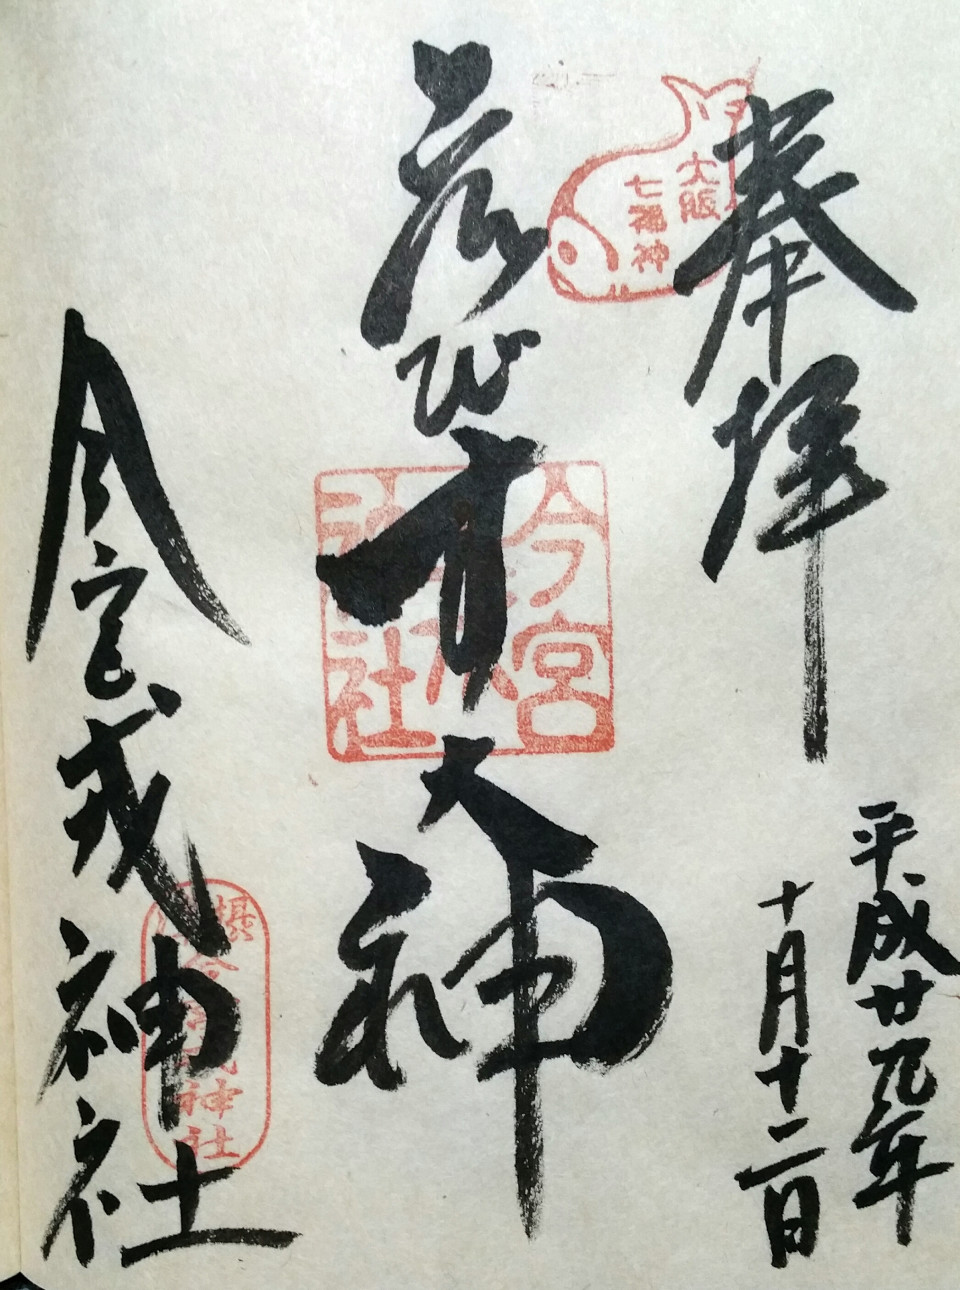 奉拝
大阪
七福神
平成廿九年
十月十二日
ゑびす大神
今宮
戎
神社
今宮戎神社
今宮戎神社